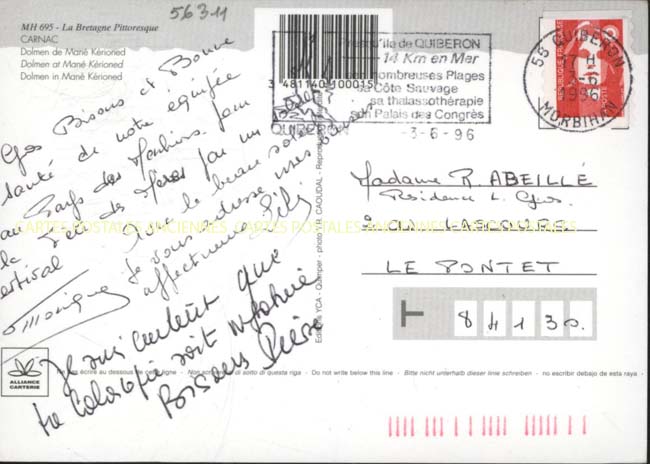 56311
MH 695 - La Bretagne Pittoresque
CARNAC
Dolmen de Mané Kérioned
Dolmen at Mané Kérioned
Dolmen in Mané Kérioned
3 481140 100015
Presqu'île de QUIBERON
14 Km en Mer
nombreuses Plages
sa Côte Sauvage
sa thalassothérapie
son Palais des Congrès
QUIBERON
-3-6-96
56 QUIBERON
1996
MORBIHAN
REPUBLIQUE FRANÇAISE
Gros Bisous et Bonne
santé de notre équipée
au Pays des Menhirs. Jour
de la Fête des Mères par un
temps estival
Je vous adresse mes
affectueuses
Monique
Je suis content que
ta coloscopie soit
Bisous Pierre
Madame R. ABEILLÉ
Résidence L.
LE PONTET
84130
CARTES POSTALES ANCIENNES CARTES POSTALES ANCIENNES CARTES POSTALES ANCIENNES
Editions YCA - Quimper - photo Y.R. CAOUDAL - Reproduction
ALLIANCE
CARTERIE
Ne rien écrire au dessous de cette ligne - Non scrivere al di sotto di questa riga - Do not write below this line - Bitte nicht unterhalb dieser linie schreiben - no escribir debajo de esta raya